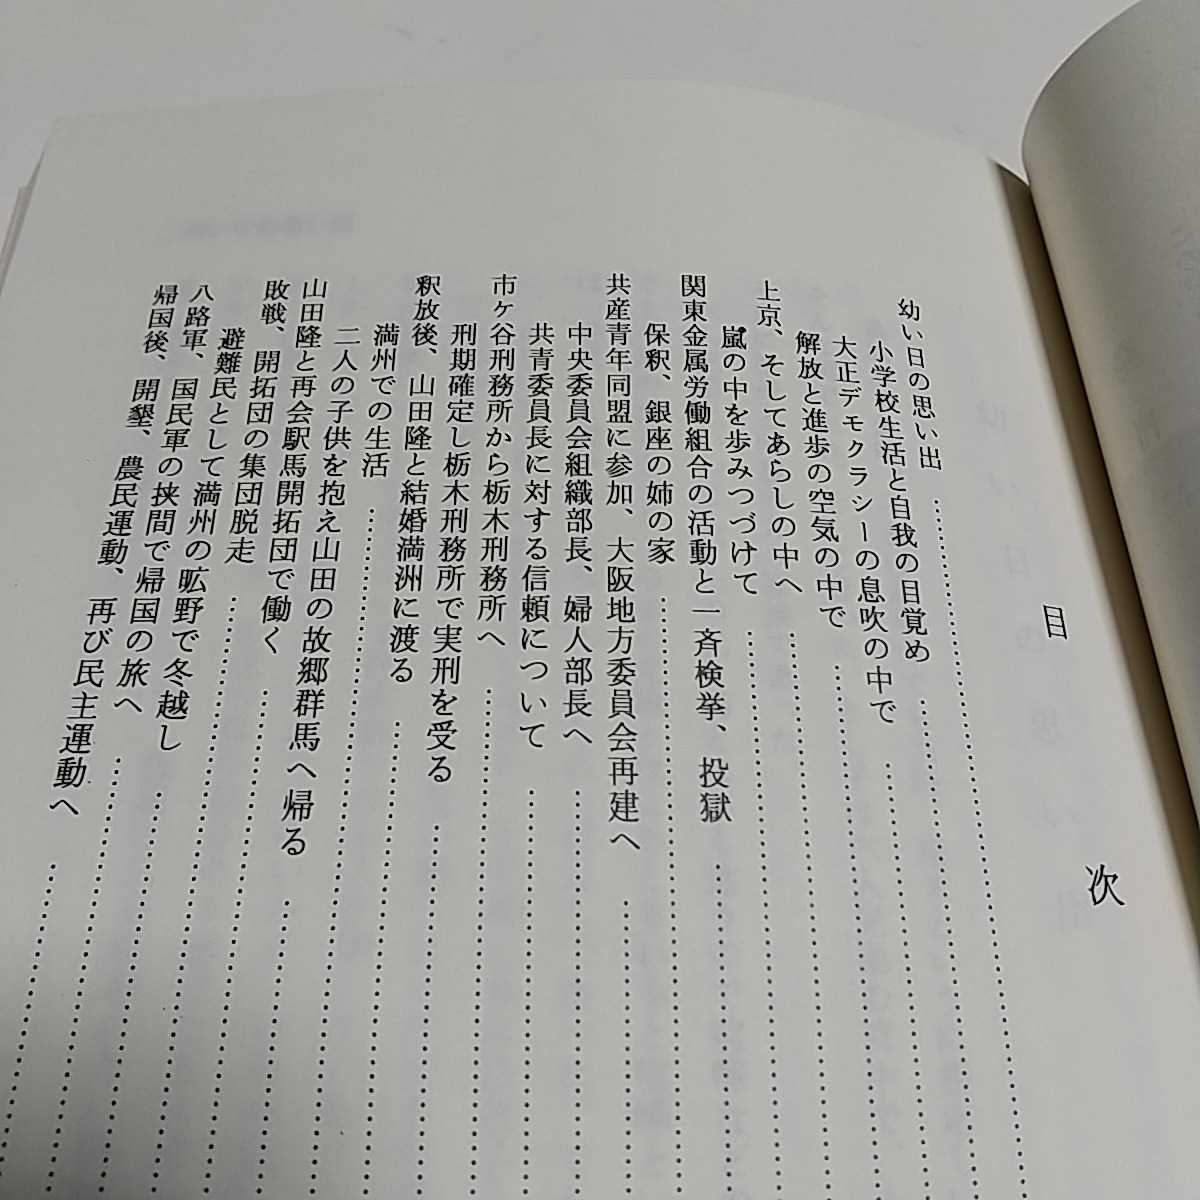 目次
幼い日の思い出
小学校生活と自我の目覚め
大正デモクラシーの息吹の中で
解放と進歩の空気の中で
上京、そしてあらしの中へ
嵐の中を歩みつづけて
関東金属労働組合の活動と一斉検挙、投獄
保釈、銀座の姉の家
共産青年同盟に参加、大阪地方委員会再建へ
中央委員会組織部長、婦人部長へ
共青委員長に対する信頼について
市ヶ谷刑務所から栃木刑務所へ
刑期確定し栃木刑務所で実刑を受る
釈放後、山田隆と結婚満洲に渡る
満州での生活
二人の子供を抱え山田の故郷群馬へ帰る
山田隆と再会駅馬開拓団で働く
敗戦、開拓団の集団脱走
避難民として満州の昿野で冬越し
八路軍、国民軍の挟間で帰国の旅へ
帰国後、開墾、農民運動、再び民主運動へ